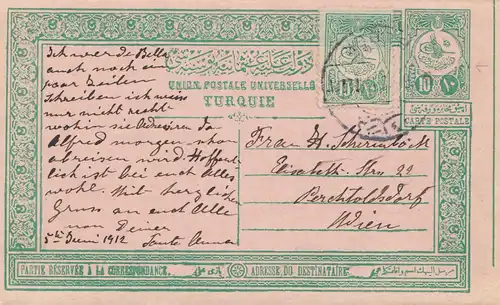 Ich werde Bella
auch noch ein
paar Zeilen
schreiben ich weiss
nur nicht recht
wohin sie Adressiren da
Alfred morgen schon
abreisen wird. Hoffent-
lich ist bei euch Alles
wohl. Mit herzlichen
Gruss an euch Alle
von Deiner
5ten Juni 1912 Tante Anna
دولت علیه عثمانیه پوسته لری
UNION POSTALE UNIVERSELLE
TURQUIE
10 ١٠
CARTE POSTALE
Frau H.
Elisabeth-Str. 22
Perchtoldsdorf
Wien
PARTIE RÉSERVÉE À LA CORRESPONDANCE.
ADRESSE DU DESTINATAIRE.